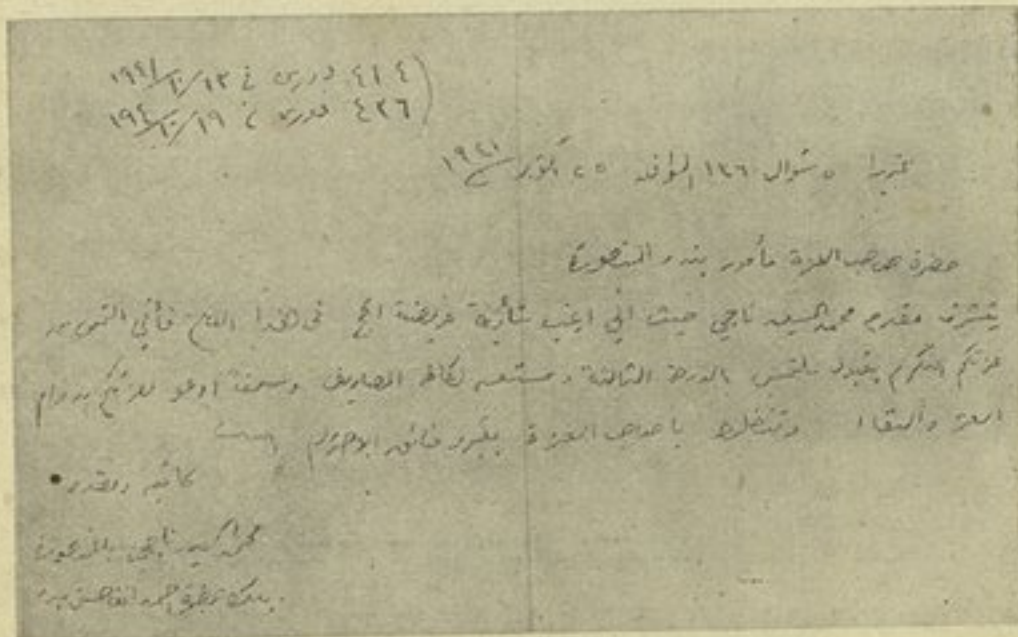 ٤١٤ دوري في ١٣/١٠/١٩٤١
٤٢٦ دوري في ١٩/١٠/١٩٤
تحريرا ٥ شوال ١٣٦ الموافق ٢٥ اكتوبر ١٩٤١
حضرة صاحب العزة مأمور بندر المنصورة
يتشرف مقدم محمد السيد ناجي حيث اني ارغب تأدية فريضة الحج في هذا العام فأني التمس من
عزتكم التكرم بقبول بالدرجة الثالثة ومستعد لكافة المصاريف وختاما ادعو لعزتكم بدوام
العز والبقاء وتفضلوا يا صاحب العزة بقبول فائق الاحترام
كاتبه ومقدمه
محمد السيد ناجي بالمنصورة
بملك